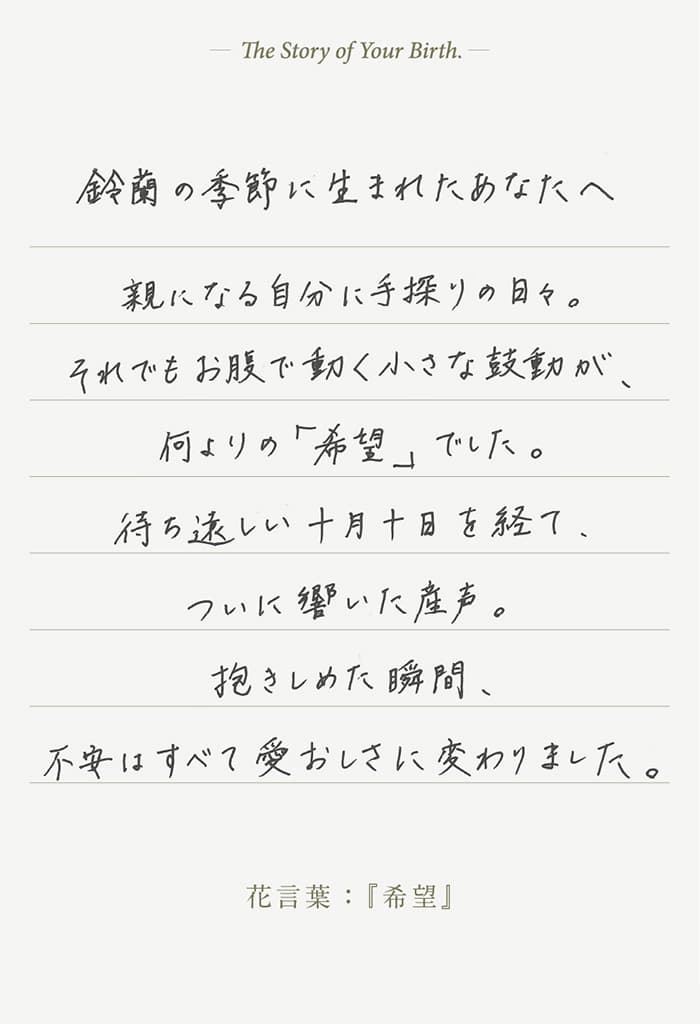 The Story of Your Birth.
鈴蘭の季節に生まれたあなたへ
親になる自分に手探りの日々。
それでもお腹で動く小さな鼓動が、
何よりの「希望」でした。
待ち遠しい十月十日を経て、
ついに響いた産声。
抱きしめた瞬間、
不安はすべて愛おしさに変わりました。
花言葉：『希望』